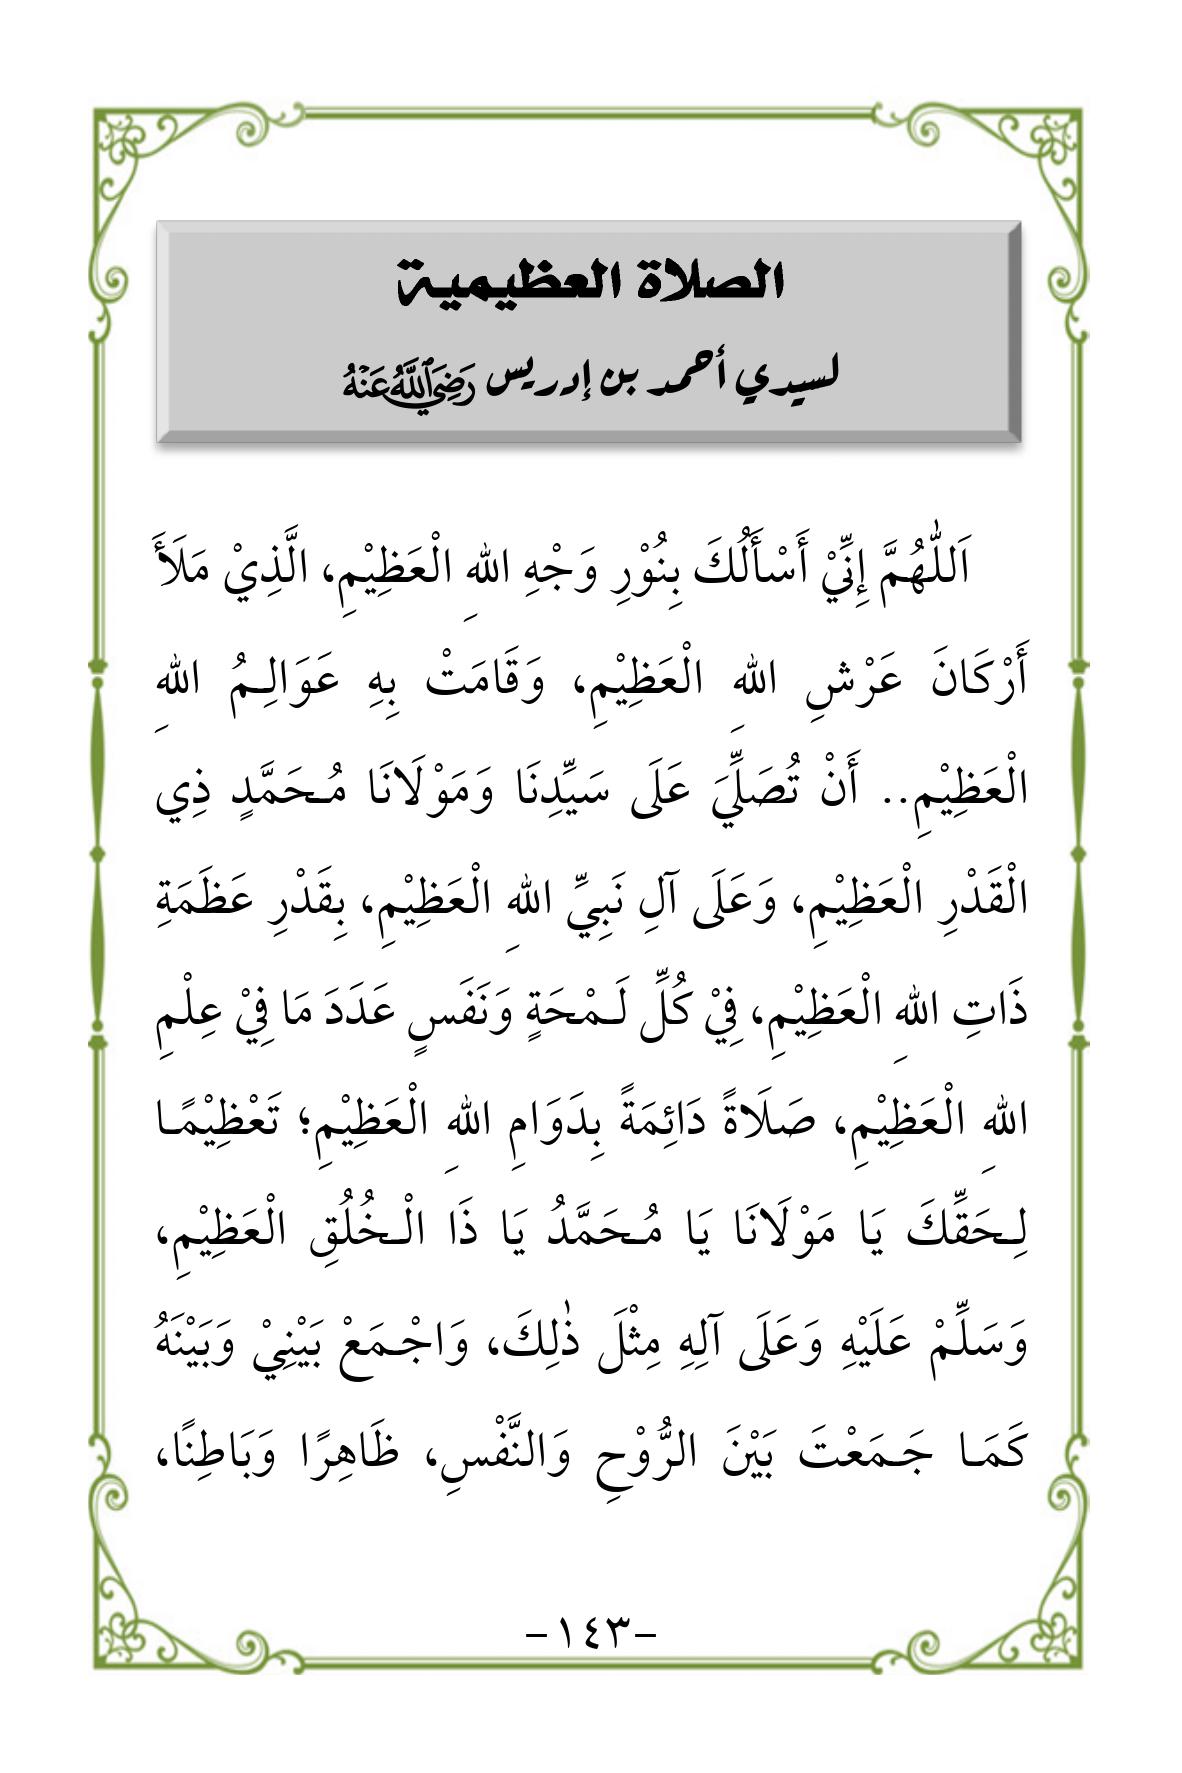 الصلاة العظيمية
لسيدي أحمد بن إدريس رَضِيَ اللَّهُ عَنْهُ
اَللّٰهُمَّ إِنِّيْ أَسْأَلُكَ بِنُوْرِ وَجْهِ اللهِ الْعَظِيْمِ، الَّذِيْ مَلَأَ
أَرْكَانَ عَرْشِ اللهِ الْعَظِيْمِ، وَقَامَتْ بِهِ عَوَالِـمُ اللهِ
الْعَظِيْمِ.. أَنْ تُصَلِّيَ عَلَى سَيِّدِنَا وَمَوْلَانَا مُـحَمَّدٍ ذِي
الْقَدْرِ الْعَظِيْمِ، وَعَلَى آلِ نَبِيِّ اللهِ الْعَظِيْمِ، بِقَدْرِ عَظَمَةِ
ذَاتِ اللهِ الْعَظِيْمِ، فِيْ كُلِّ لَـمْحَةٍ وَنَفَسٍ عَدَدَ مَا فِيْ عِلْمِ
اللهِ الْعَظِيْمِ، صَلَاةً دَائِمَةً بِدَوَامِ اللهِ الْعَظِيْمِ؛ تَعْظِيْمًـا
لِـحَقِّكَ يَا مَوْلَانَا يَا مُـحَمَّدُ يَا ذَا الْـخُلُقِ الْعَظِيْمِ،
وَسَلِّمْ عَلَيْهِ وَعَلَى آلِهِ مِثْلَ ذٰلِكَ، وَاجْـمَعْ بَيْنِيْ وَبَيْنَهُ
كَمَـا جَـمَعْتَ بَيْنَ الرُّوْحِ وَالنَّفْسِ، ظَاهِرًا وَبَاطِنًا،
-١٤٣-